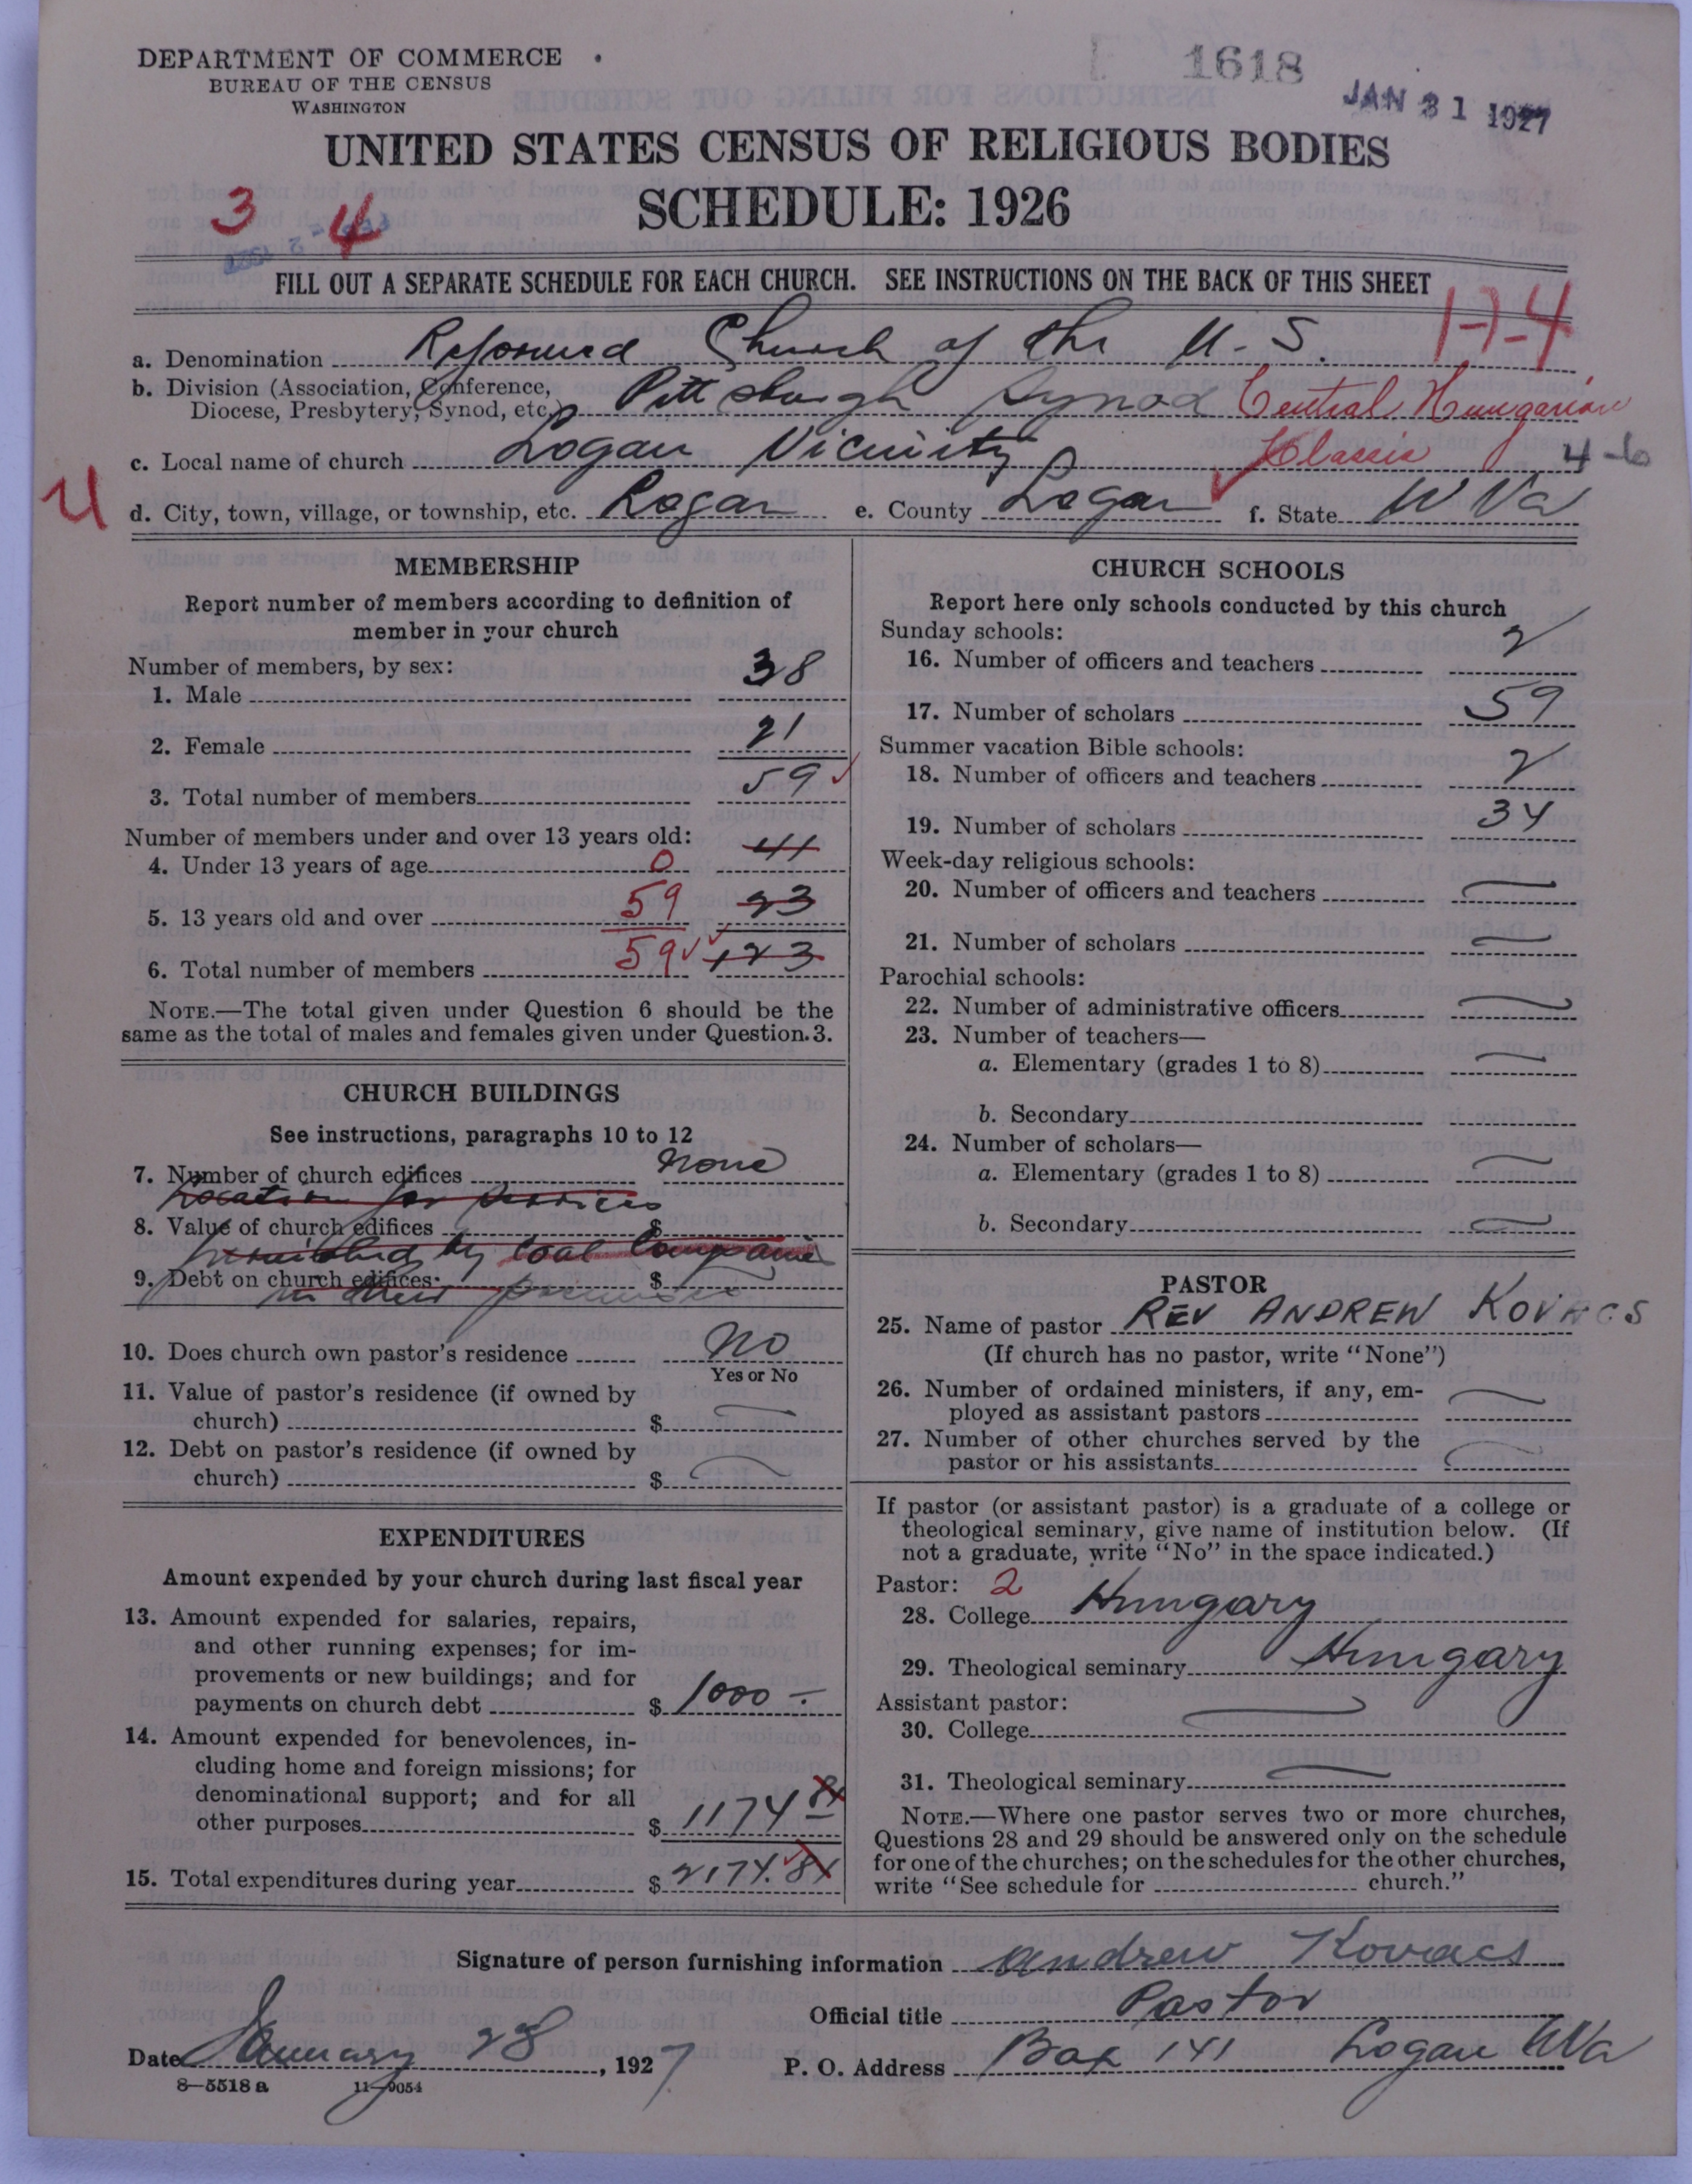 DEPARTMENT OF COMMERCE
BUREAU OF THE CENSUS
WASHINGTON
1618
JAN 31 1927
UNITED STATES CENSUS OF RELIGIOUS BODIES
SCHEDULE: 1926
3 4
FILL OUT A SEPARATE SCHEDULE FOR EACH CHURCH. SEE INSTRUCTIONS ON THE BACK OF THIS SHEET
17-4
a. Denomination Reformed Church of the U. S.
b. Division (Association, Conference, Diocese, Presbytery, Synod, etc.) Pittsburgh Synod Central Hungarian
Classis
c. Local name of church Logan Vicinity 4-6
4
d. City, town, village, or township, etc. Logan e. County Logan f. State W Va
MEMBERSHIP
Report number of members according to definition of
member in your church
Number of members, by sex:
1. Male 38
2. Female 21
3. Total number of members 59
Number of members under and over 13 years old:
4. Under 13 years of age 0 41
5. 13 years old and over 59 23
6. Total number of members 59 123
NOTE.—The total given under Question 6 should be the
same as the total of males and females given under Question 3.
CHURCH BUILDINGS
See instructions, paragraphs 10 to 12
7. Number of church edifices None
Location for services
8. Value of church edifices $
furnished by Coal Companie
9. Debt on church edifices $
in their premises
10. Does church own pastor's residence No
Yes or No
11. Value of pastor's residence (if owned by
church) $
12. Debt on pastor's residence (if owned by
church) $
EXPENDITURES
Amount expended by your church during last fiscal year
13. Amount expended for salaries, repairs,
and other running expenses; for im-
provements or new buildings; and for
payments on church debt $ 1000 -
14. Amount expended for benevolences, in-
cluding home and foreign missions; for
denominational support; and for all
other purposes $ 1174 84
15. Total expenditures during year $ 2174.84
CHURCH SCHOOLS
Report here only schools conducted by this church
Sunday schools:
16. Number of officers and teachers 2
17. Number of scholars 59
Summer vacation Bible schools:
18. Number of officers and teachers 2
19. Number of scholars 34
Week-day religious schools:
20. Number of officers and teachers
21. Number of scholars
Parochial schools:
22. Number of administrative officers
23. Number of teachers—
a. Elementary (grades 1 to 8)
b. Secondary
24. Number of scholars—
a. Elementary (grades 1 to 8)
b. Secondary
PASTOR
25. Name of pastor REV ANDREW KOVACS
(If church has no pastor, write "None")
26. Number of ordained ministers, if any, em-
ployed as assistant pastors
27. Number of other churches served by the
pastor or his assistants
If pastor (or assistant pastor) is a graduate of a college or
theological seminary, give name of institution below. (If
not a graduate, write "No" in the space indicated.)
Pastor: 2
28. College Hungary
29. Theological seminary Hungary
Assistant pastor:
30. College
31. Theological seminary
NOTE.—Where one pastor serves two or more churches,
Questions 28 and 29 should be answered only on the schedule
for one of the churches; on the schedules for the other churches,
write "See schedule for church."
Signature of person furnishing information Andrew Kovacs
Official title Pastor
Date January 28, 1927 P. O. Address Box 141 Logan WVa
8-5518 a 11-9054